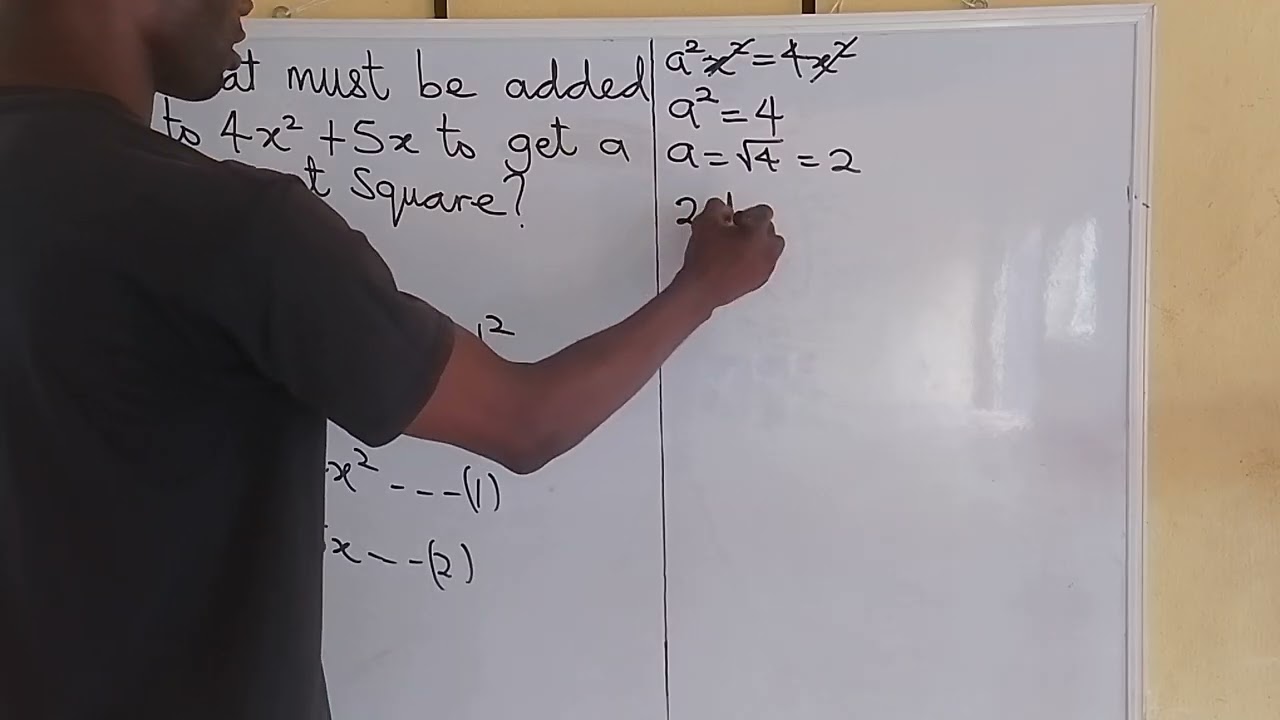 at must be added
to 4x² + 5x to get a
t Square?
²
x² - - - (1)
x - - - (2)
a²x² = 4x²
a² = 4
a = √4 = 2
2